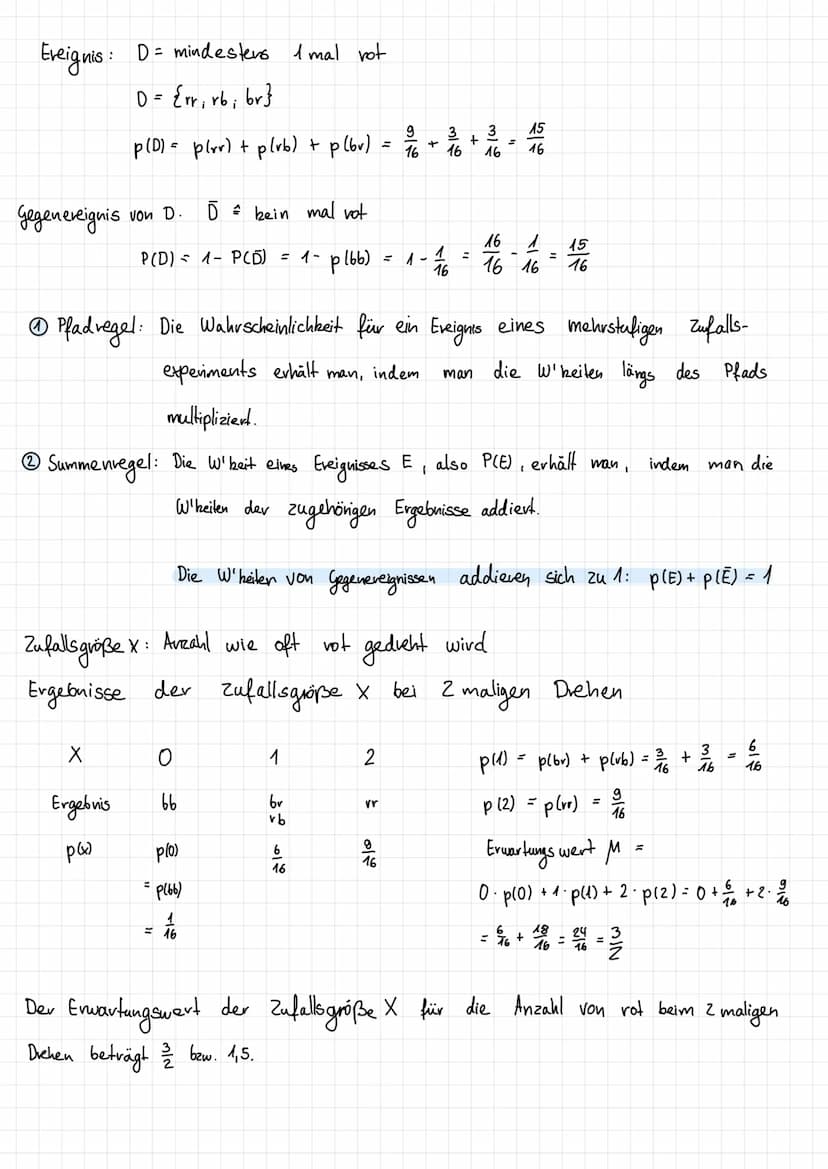 Ereignis: D = mindestens 1 mal rot
D = {rr; rb; br}
p(D) = p(rr) + p(rb) + p(br) = 9/16 + 3/16 + 3/16 = 15/16
Gegenereignis von D. D̄ ≙ kein mal rot
P(D) = 1 - P(D̄) = 1 - p(bb) = 1 - 1/16 = 16/16 - 1/16 = 15/16
① Pfadregel: Die Wahrscheinlichkeit für ein Ereignis eines mehrstufigen Zufalls-
experiments erhält man, indem man die W'keiten längs des Pfads
multipliziert.
② Summenregel: Die W'keit eines Ereignisses E, also P(E), erhält man, indem man die
W'keiten der zugehörigen Ergebnisse addiert.
Die W'keiten von Gegenereignissen addieren sich zu 1: p(E) + p(Ē) = 1
Zufallsgröße X: Anzahl wie oft rot gedreht wird
Ergebnisse der Zufallsgröße X bei 2 maligen Drehen
X 0 1 2 p(1) = p(br) + p(rb) = 3/16 + 3/16 = 6/16
Ergebnis bb br rb rr p(2) = p(rr) = 9/16
p(x) p(0) 6/16 9/16 Erwartungswert μ =
= p(bb) 0 · p(0) + 1 · p(1) + 2 · p(2) = 0 + 6/16 + 2 · 9/16
= 1/16 = 6/16 + 18/16 = 24/16 = 3/2
Der Erwartungswert der Zufallsgröße X für die Anzahl von rot beim 2 maligen
Drehen beträgt 3/2 bzw. 1,5.